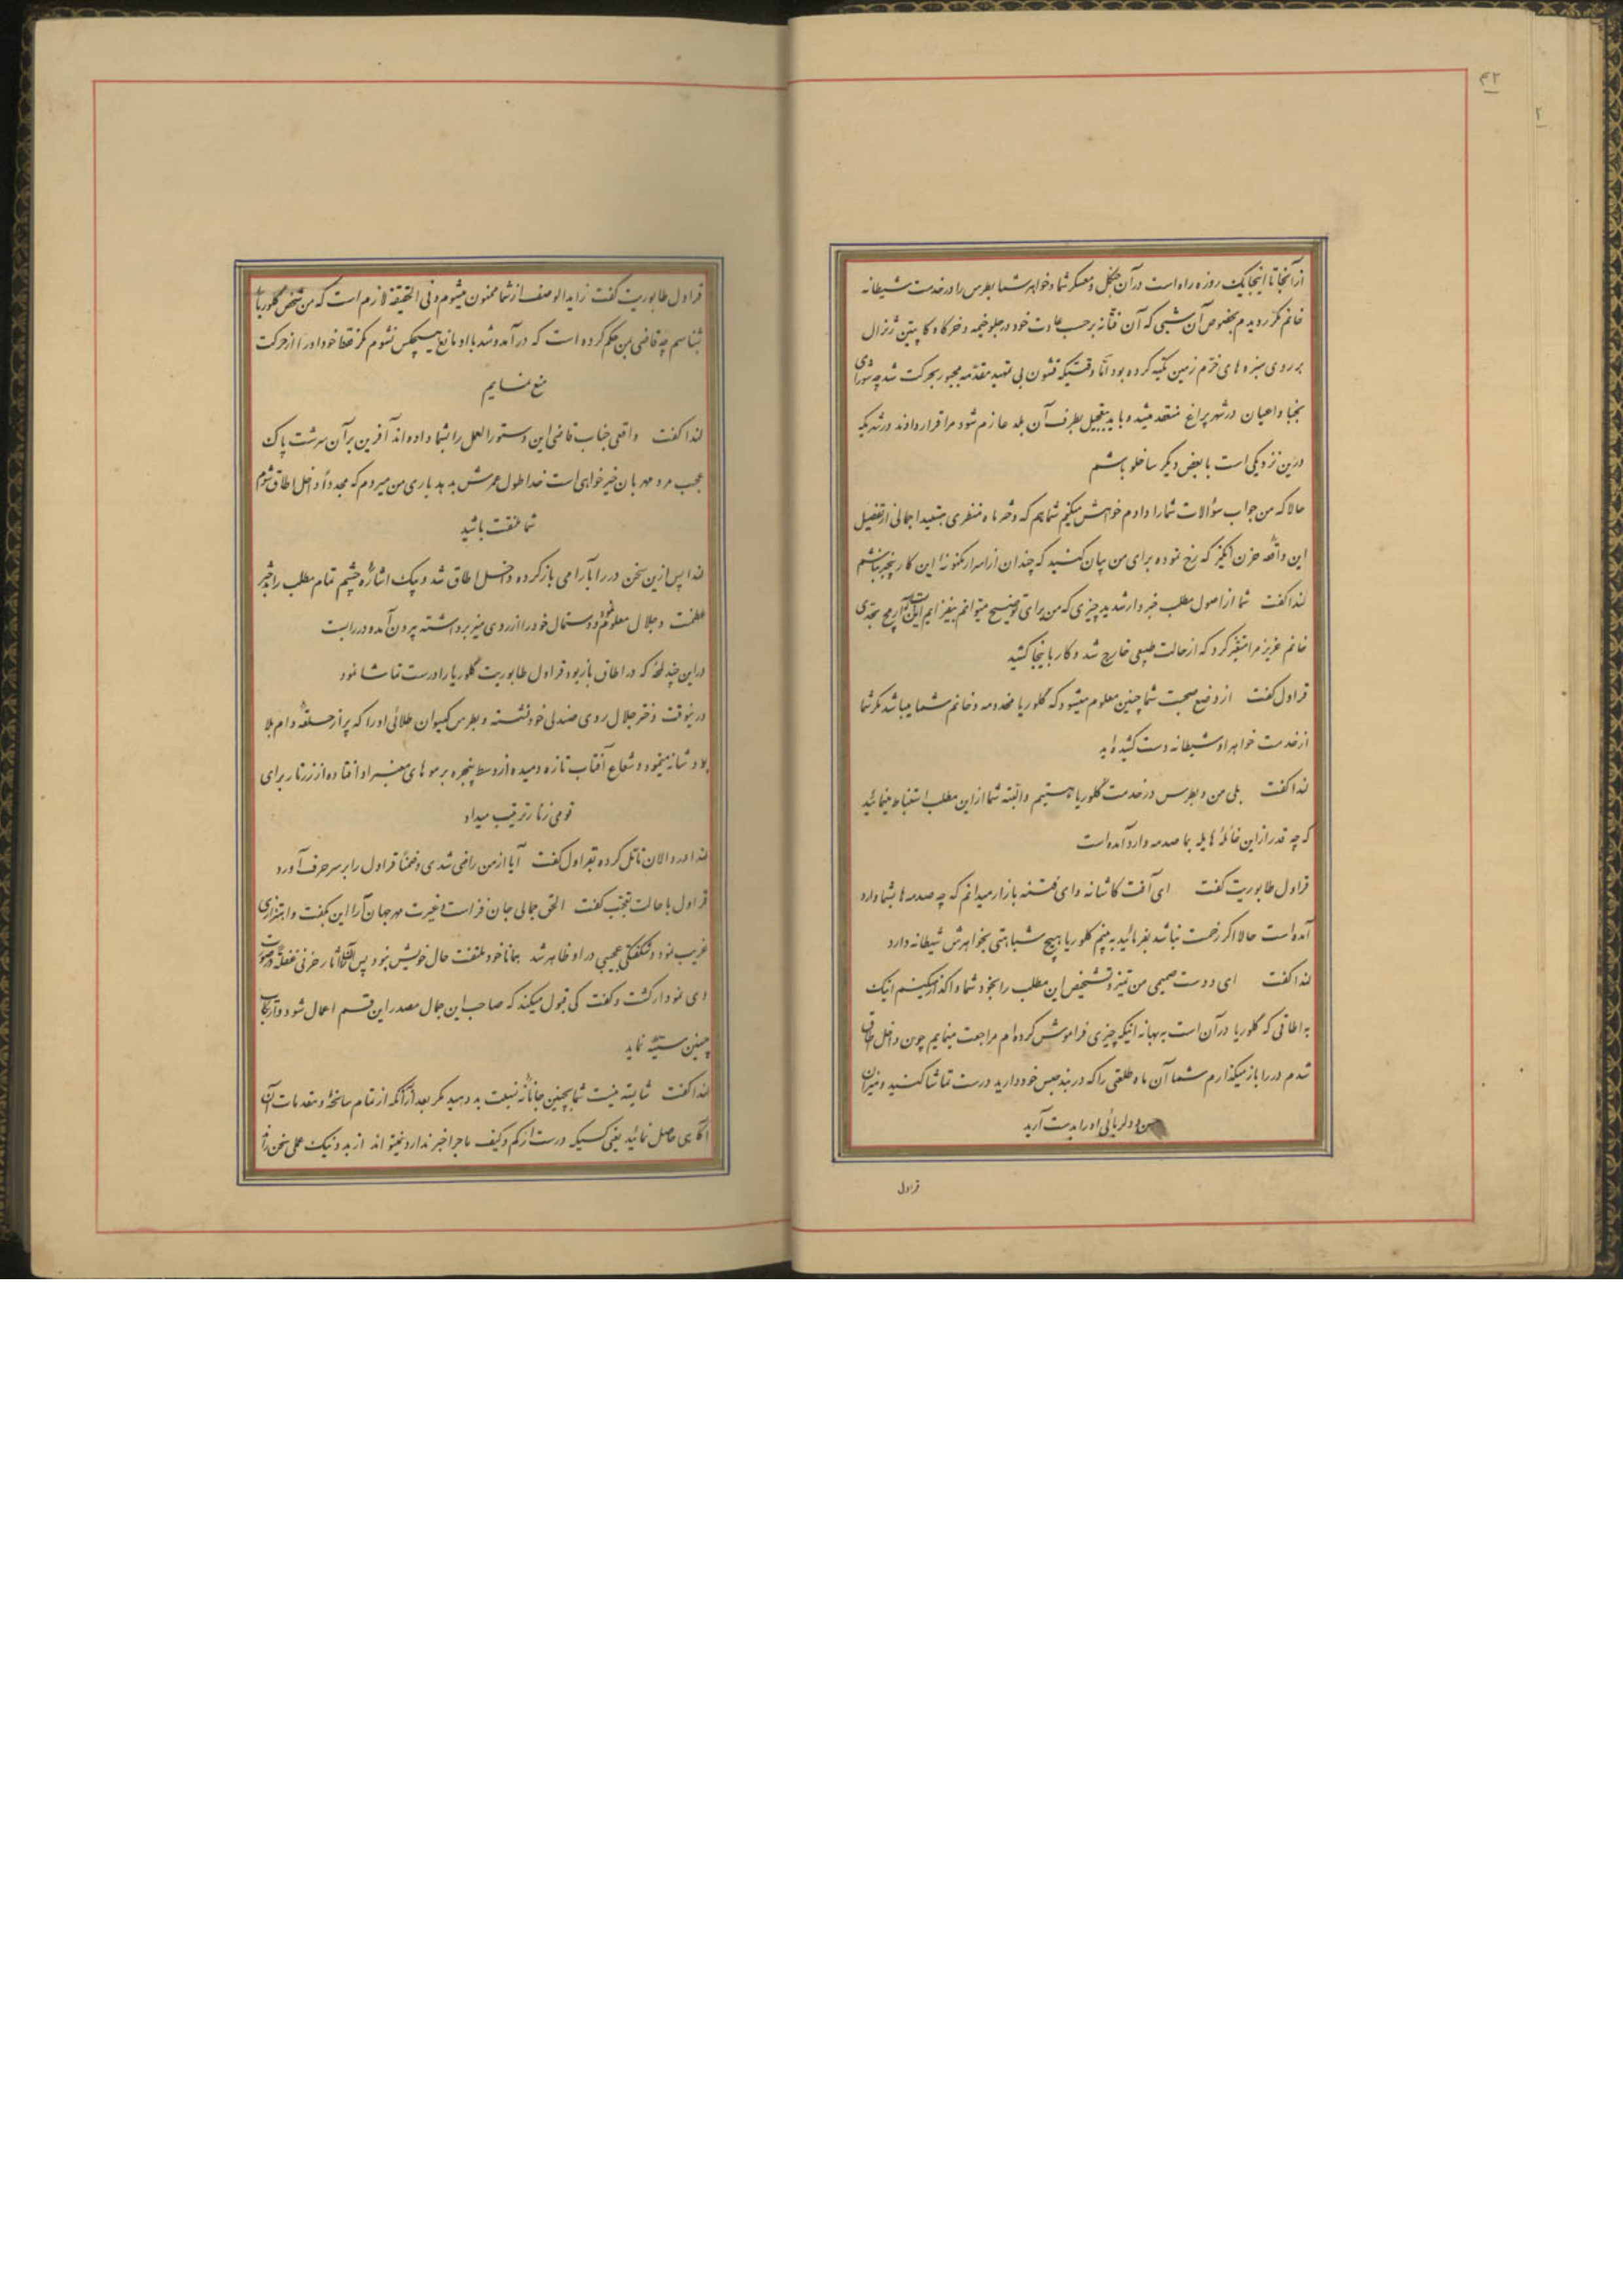 ۴۲
۲
از آنجا تا اینجا یک روزه راه است در آن جنگل و معسکر شما و خواهر شما بطرس را در خدمت شیطانه
خانم مکرر دیدم بخصوص آن شبی که آن فتانه برحسب عادت خود در جلو خیمه و خرگاه کاپیتن ژنرال
بر روی سبزه های خرم زمین تکیه کرده بود اما وقتیکه قشون بی تمهید مقدمه مجبور بحرکت شد چه شورای
نجبا و اعیان در شهر پراغ منعقد میشد و باید بتعجیل بطرف آن بلد عازم شود مرا قرار دادند در شهریکه
درین نزدیکی است با بعض دیگر ساخلو باشم
حالا که من جواب سؤالات شما را دادم خواهش میکنم شما هم که دختر ماه منظری هستید اجمالی از تفصیل
این واقعه حزن انگیز که رخ نموده برای من بیان کنید که چندان از اسرار مکنونه این کار بیخبر نباشم
لندا گفت شما از اصول مطلب خبردار شدید چیزی که من برای توضیح میتوانم بیفزایم این است که اریج بحدی
خانم عزیز مرا متغیر کرد که از حالت طبیعی خارج شد و کار باینجا کشید
قراول گفت از وضع صحبت شما چنین معلوم میشود که گلوریا مخدومه و خانم شما میباشد مگر شما
از خدمت خواهر او شیطانه دست کشیده اید
لندا گفت بلی من و بطرس در خدمت گلوریا هستیم و البته شما از این مطلب استنباط مینمائید
که چه قدر از این غائلهٔ هایله بما صدمه وارد آمده است
قراول طابوریت گفت ای آفت کاشانه و ای فتنه بازار میدانم که چه صدمه ها بشما وارد
آمده است حالا اگر زحمت نباشد بفرمائید به بینم گلوریا هیچ شباهتی بخواهرش شیطانه دارد
لندا گفت ای دوست صمیمی من تمیز و تشخیص این مطلب را بخود شما واگذار میکنم اینک
به اطاقی که گلوریا در آن است به بهانه اینکه چیزی فراموش کرده ام مراجعت مینمایم چون داخل اطاق
شدم در را باز میگذارم شما آن ماه طلعتی را که در بند حبس خود دارید درست تماشا کنید و میزان
حسن و دلربائی او را بدست آرید
قراول
قراول طابوریت گفت زاید الوصف از شما ممنون میشوم و فی الحقیقه لازم است که من شخص گلوریا را
بشناسم چه قاضی بمن حکم کرده است که در آمد و شد با او مانع هیچکس نشوم مگر فقط خود او را از حرکت
منع نمایم
لندا گفت واقعی جناب قاضی این دستور العمل را بشما داده اند آفرین بر آن سرشت پاک
عجب مرد مهربان خیرخواهی است خدا طول عمرش بدهد باری من میروم که مجدداً داخل اطاق شوم
شما ملتفت باشید
لندا پس ازین سخن در را بآرامی باز کرده داخل اطاق شد و بیک اشارهٔ چشم تمام مطلب را بدختر
عظمت و جلال معلوم نمود و دستمال خود را از روی میز برداشته بیرون آمد و در را بست
در این چند لحظه که در اطاق باز بود قراول طابوریت گلوریا را درست تماشا نمود
در ینوقت دختر جلال روی صندلی خود نشسته و بطرس گیسوان طلائی او را که پر از حلقه و دام بلا
بود شانه مینمود و شعاع آفتاب تازه دمیده از وسط پنجره بر موهای معنبر او افتاده از زر تار برای
قومی زنار ترتیب میداد
لندا در دالان تأمل کرده بقراول گفت آیا از من راضی شدی و ضمناً قراول را بر سر حرف آورد
قراول با حالت تعجب گفت الحق جمالی جان فزا است و غیرت مهر جهان آرا این بگفت و اهتزازی
غریب نمود و شگفتی عجیبی در او ظاهر شد همانا خود ملتفت حال خویش نبود پس آنگاه آثار حزنی غفلةً در صورت
وی نمودار گشت و گفت کی قبول میکند که صاحب این جمال مصدر این قسم اعمال شود و ارتکاب
چنین سیئه نماید
لندا گفت شایسته نیست شما بچنین جانانه نسبت بد دهید مگر بعد از آنکه از تمام سانحه و مقدمات آن
آگاهی حاصل نمائید یعنی کسیکه درست از کم و کیف ماجرا خبر ندارد نمیتواند از بد و نیک عملی سخن راند